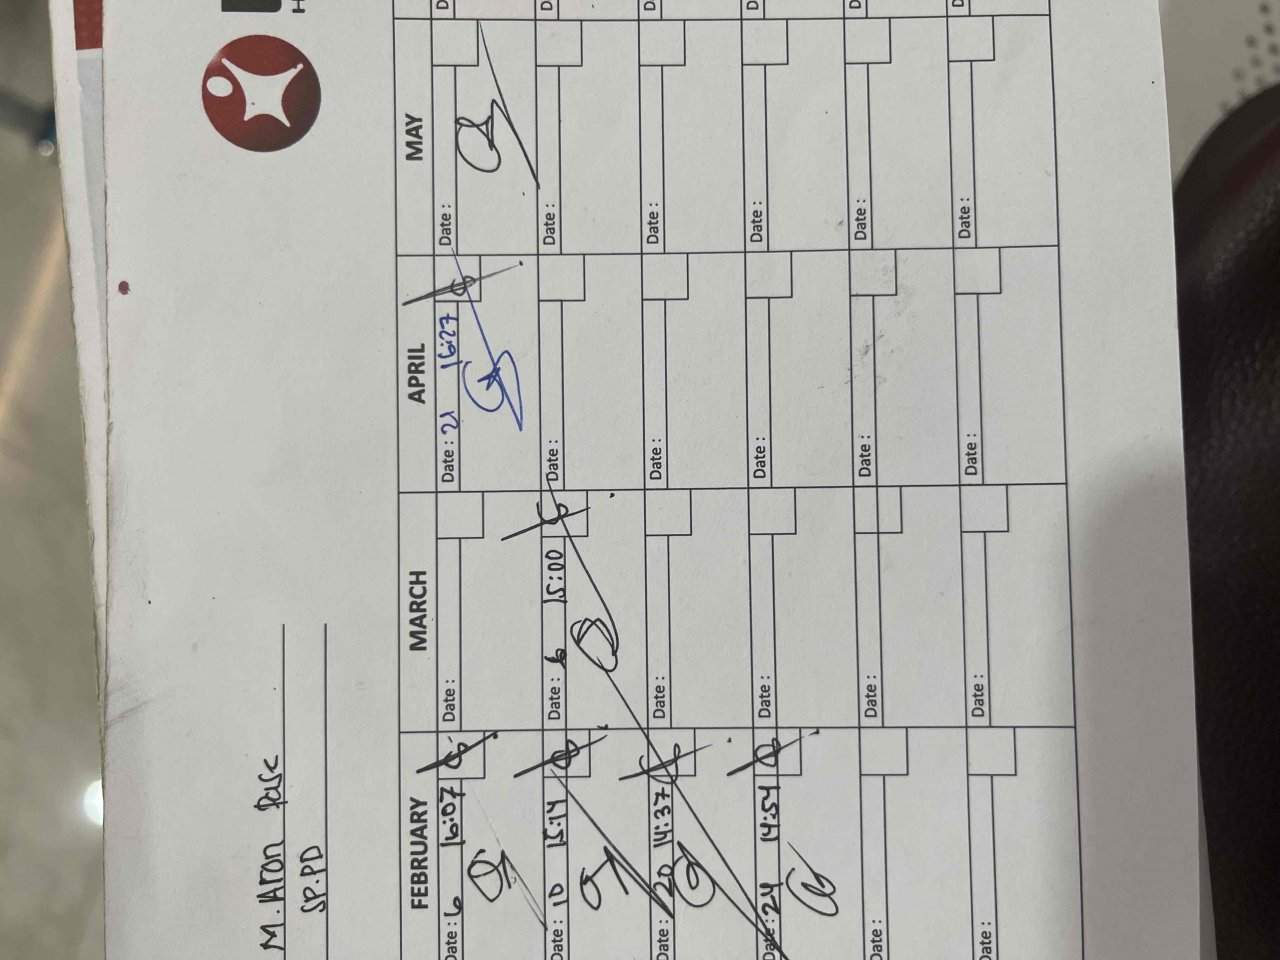 M. Aron Pase
SP.PD
FEBRUARY MARCH APRIL MAY
Date : 6 16:07 Date : Date : 21 16:27 Date :
Date : 10 15:14 Date : 6 15:00 Date : Date :
Date : 20 14:37 Date : Date : Date :
Date : 24 14:54 Date : Date : Date :
Date : Date : Date : Date :
Date : Date : Date : Date :